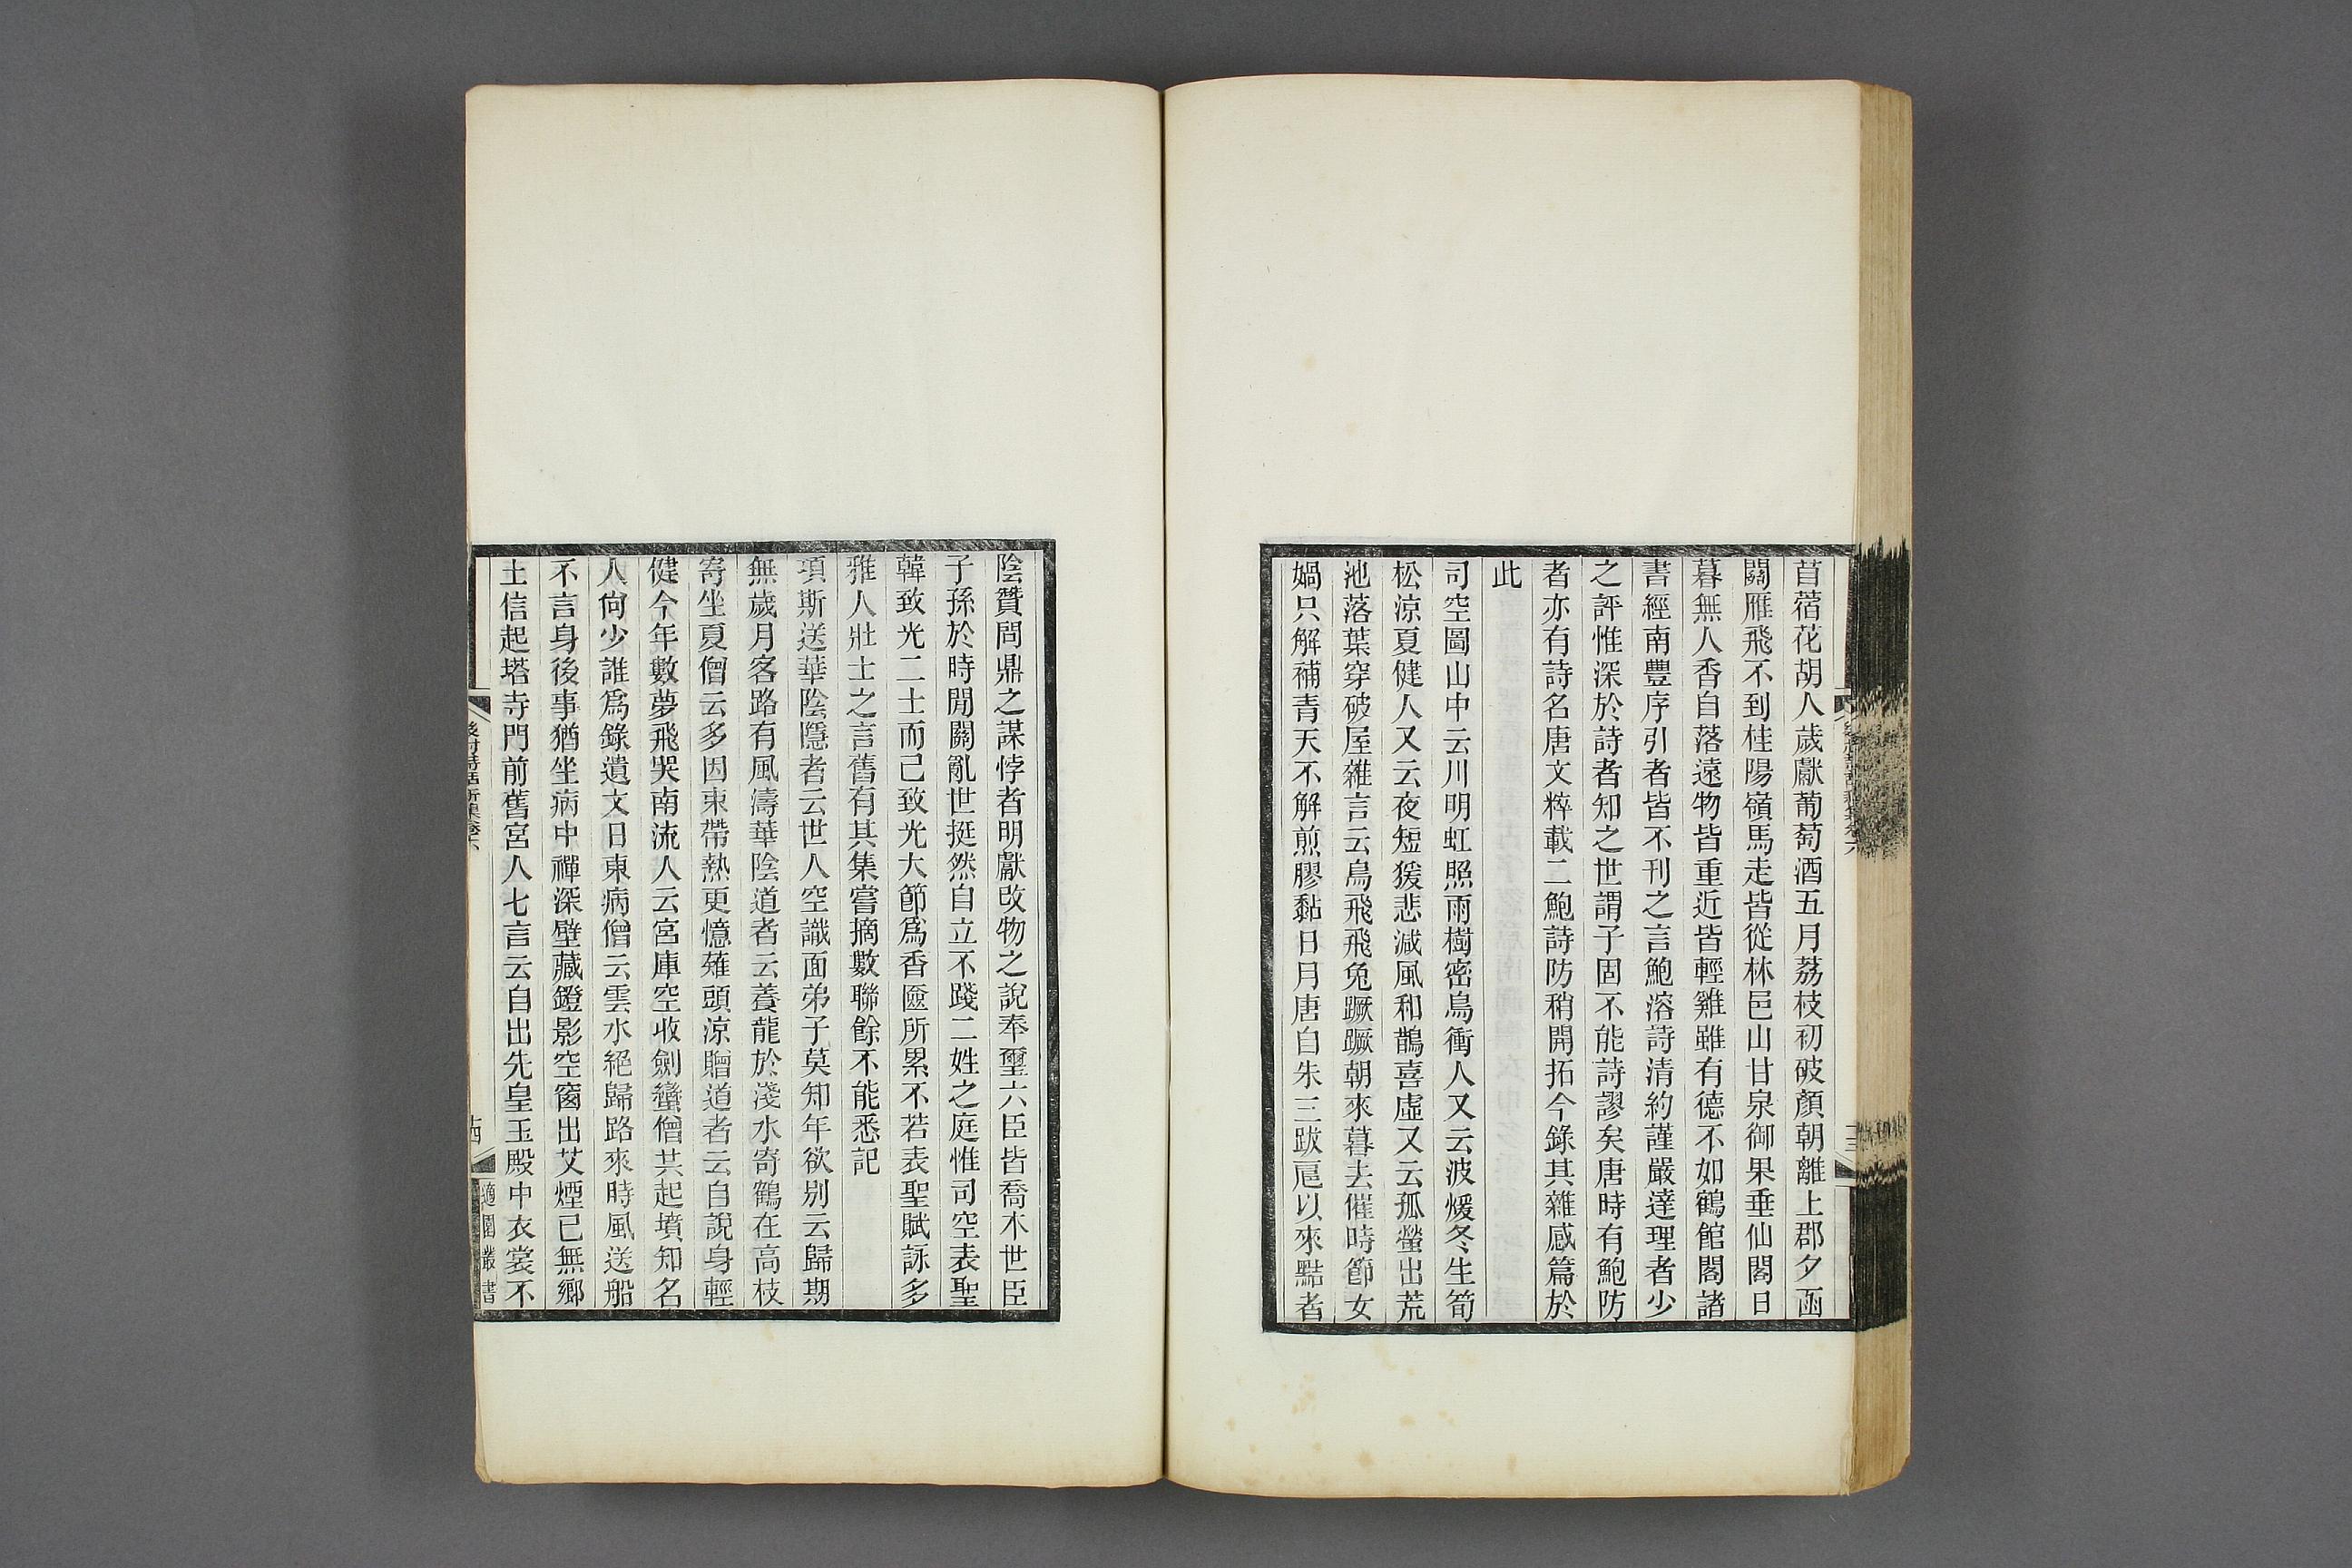 苜蓿花胡人歲獻葡萄酒五月荔枝初破顏朝離上郡夕函
關雁飛不到桂陽嶺馬走皆從林邑山甘泉御果垂仙閣日
暮無人香自落遠物皆重近皆輕雞雖有德不如鶴館閣諸
書經南豐序引者皆不刊之言鮑溶詩清約謹嚴達理者少
之評惟深於詩者知之世謂子固不能詩謬矣唐時有鮑防
者亦有詩名唐文粹載二鮑詩防稍開拓今錄其雜感篇於
此
司空圖山中云川明虹照雨樹密鳥衝人又云波煖冬生筍
松涼夏健人又云夜短猨悲減風和鵲喜虛又云孤螢出荒
池落葉穿破屋雜言云鳥飛飛兔蹶蹶朝來暮去催時節女
媧只解補青天不解煎膠黏日月唐自朱三跋扈以來黠者
陰贊問鼎之謀悖者明獻改物之說奉璽六臣皆喬木世臣
子孫於時閒關亂世挺然自立不踐二姓之庭惟司空表聖
韓致光二士而已致光大節爲香匳所累不若表聖賦詠多
雅人壯士之言舊有其集嘗摘數聯餘不能悉記
項斯送華陰隱者云世人空識面弟子莫知年欲別云歸期
無歲月客路有風濤華陰道者云養龍於淺水寄鶴在高枝
寄坐夏僧云多因束帶熱更憶薙頭涼贈道者云自說身輕
健今年數夢飛哭南流人云宮庫空收劍蠻僧共起墳知名
人向少誰爲錄遺文日東病僧云雲水絕歸路來時風送船
不言身後事猶坐病中禪深壁藏鐙影空窗出艾煙已無鄉
土信起塔寺門前舊宮人七言云自出先皇玉殿中衣裳不
後村詩話新集卷六
十四
適園叢書